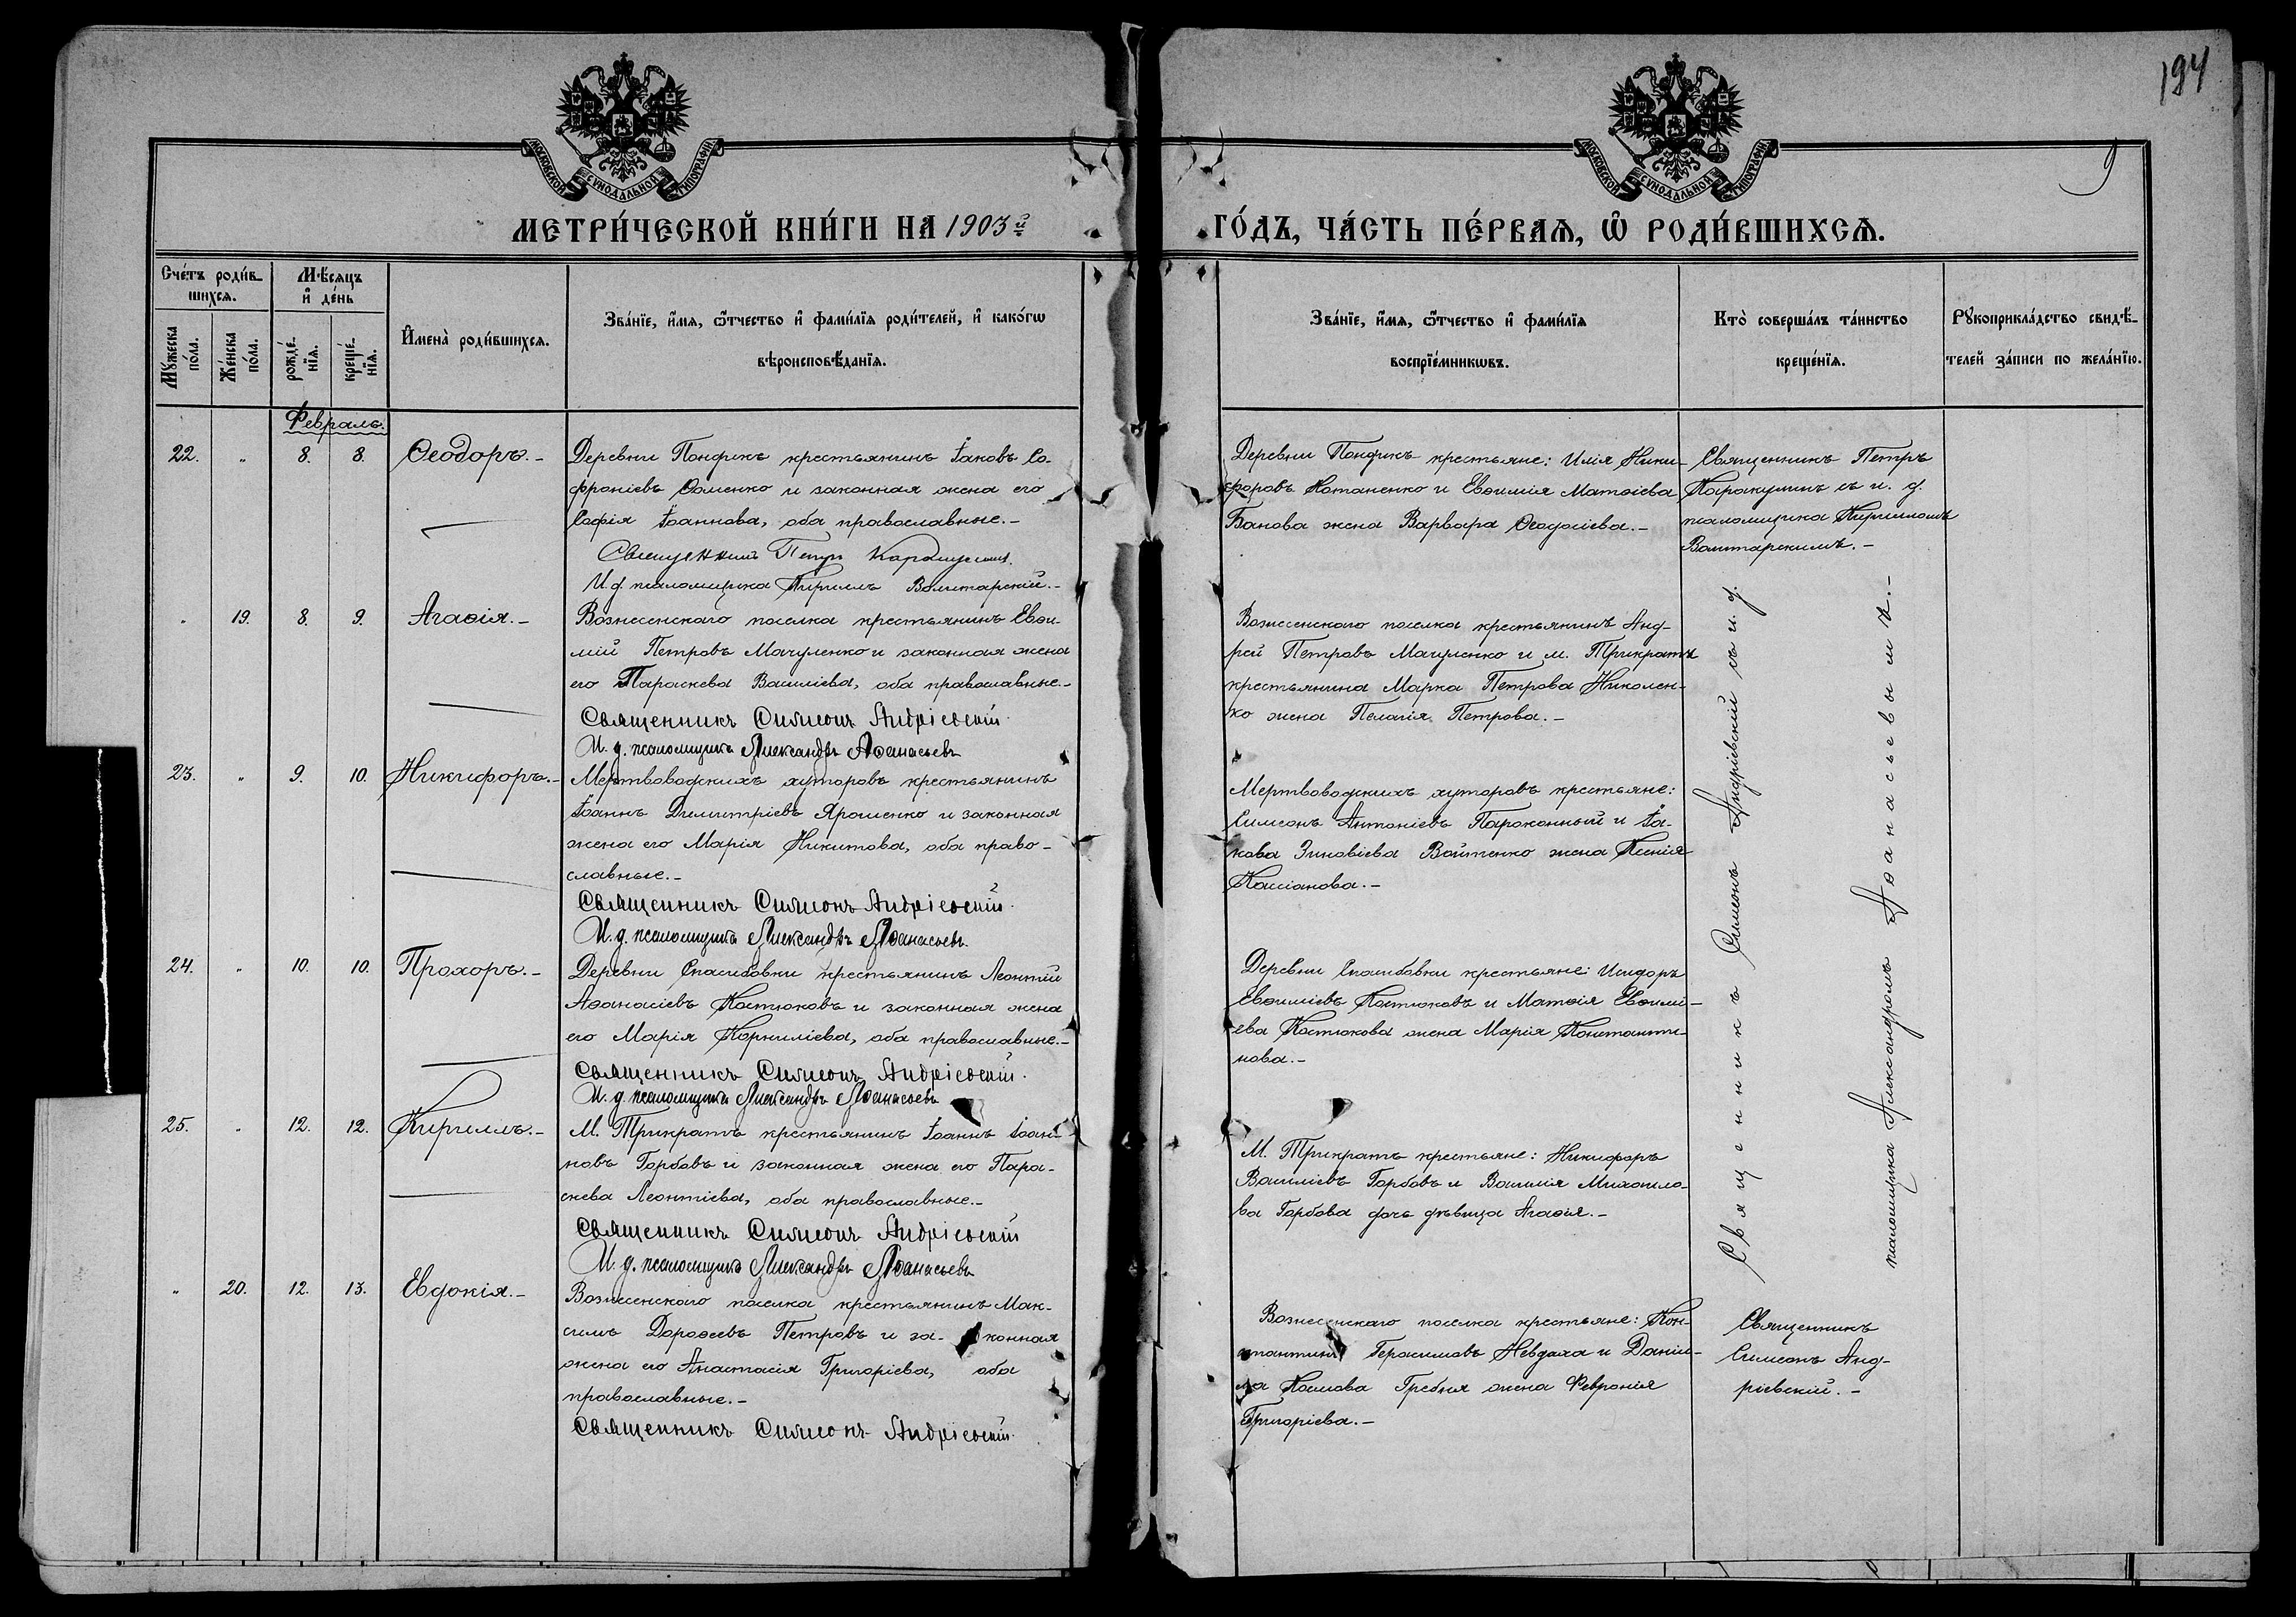 194
9
МОСКОВСКОЙ СѴНОДАЛЬНОЙ ТИПОГРАФІИ
МОСКОВСКОЙ СѴНОДАЛЬНОЙ ТИПОГРАФІИ
МЕТРИ́ЧЕСКОЙ КНИ́ГИ НА 1903й
ГО́ДЪ, ЧА́СТЬ ПЕ́РВАѦ, Ѽ РОДИ́ВШИХСѦ.
Сче́тъ роди́в-
шихсѧ.
Мѣ́сѧцъ
и҆ де́нь
Мꙋ́жеска по́ла.
Же́нска по́ла.
рожде́-нїѧ.
креще́-нїѧ.
И҆мена̀ роди́вшихсѧ.
Зва́нїе, и҆́мѧ, ѻ҆́тчество и҆ фами́лїѧ роди́телей, и҆ како́гѡ
вѣроисповѣ́данїѧ.
Зва́нїе, и҆́мѧ, ѻ҆́тчество и҆ фами́лїѧ
воспрїе́мникѡвъ.
Кто̀ соверша́лъ та́инство
креще́нїѧ.
Рꙋкоприкла́дство свидѣ́-
телей за́писи по жела́нїю.
Февраль.
22. " 8. 8. Ѳеодоръ.-
Деревни Пондикъ крестьянинъ Іаковъ Со-
фроніевъ Ѳоменко и законная жена его
Софія Іоаннова, оба православные.-
Священникъ Петръ Каракулинъ.
И. д. псаломщика Кириллъ Волитарскій.-
Деревни Пондикъ крестьяне: Илія Ники-
форовъ Потаненко и Евѳимія Матѳіева
Банова жена Варвара Ѳеодосіева.-
Священникъ Петръ
Каракулинъ съ и. д.
псаломщика Кирилломъ
Волитарскимъ.-
" 19. 8. 9. Агаѳія.-
Вознесенскаго поселка крестьянинъ Евѳи-
мій Петровъ Мачуленко и законная жена
его Параскева Василіева, оба православные.-
Священникъ Симеонъ Андріевскій.
И. д. псаломщика Александръ Аѳанасьевъ
Вознесенскаго поселка крестьянинъ Анд-
рей Петровъ Мачуленко и м. Трикратъ
крестьянина Марка Петрова Николен-
ко жена Пелагія Петрова.-
23. " 9. 10. Никифоръ.-
Мертвоводскихъ хуторовъ крестьянинъ
Іоаннъ Димитріевъ Ярошенко и законная
жена его Марія Никитова, оба право-
славные.-
Священникъ Симеонъ Андріевскій.
И. д. псаломщика Александръ Аѳанасьевъ.
Мертвоводскихъ хуторовъ крестьяне:
Симеонъ Антоніевъ Пароконный и Іа-
кова Зиновіева Войтенко жена Ксенія
Кассіанова.-
24. " 10. 10. Прохоръ.-
Деревни Спасибовки крестьянинъ Леонтій
Аѳанасіевъ Костюковъ и законная жена
его Марія Корниліева, оба православные.-
Священникъ Симеонъ Андріевскій.
И. д. псаломщика Александръ Аѳанасьевъ
Деревни Спасибовки крестьяне: Исидоръ
Евѳиміевъ Костюковъ и Матѳія Евѳимі-
ева Костюкова жена Марія Константи-
нова.-
25. " 12. 12. Кириллъ.-
М. Трикратъ крестьянинъ Іоаннъ Іоан-
новъ Горбовъ и законная жена его Пара-
скева Леонтіева, оба православные.-
Священникъ Симеонъ Андріевскій
И. д. псаломщика Александръ Аѳанасьевъ
М. Трикратъ крестьяне: Никифоръ
Василіевъ Горбовъ и Василія Михаило-
ва Горбова дочь дѣвица Агаѳія.-
Священникъ Симеонъ Андріевскій съ и. д.
псаломщика Александромъ Аѳанасьевымъ.-
" 20. 12. 13. Евдокія.-
Вознесенскаго поселка крестьянинъ Мак-
симъ Дороѳеевъ Петровъ и за- конная
жена его Анастасія Григоріева, оба
православные.-
Священникъ Симеонъ Андріевскій.
Вознесенскаго поселка крестьяне: Кон-
стантинъ Герасимовъ Невдаха и Даніи-
ла Гребня жена Февронія
Григоріева.-
Священникъ
Симеонъ Анд-
ріевскій.-